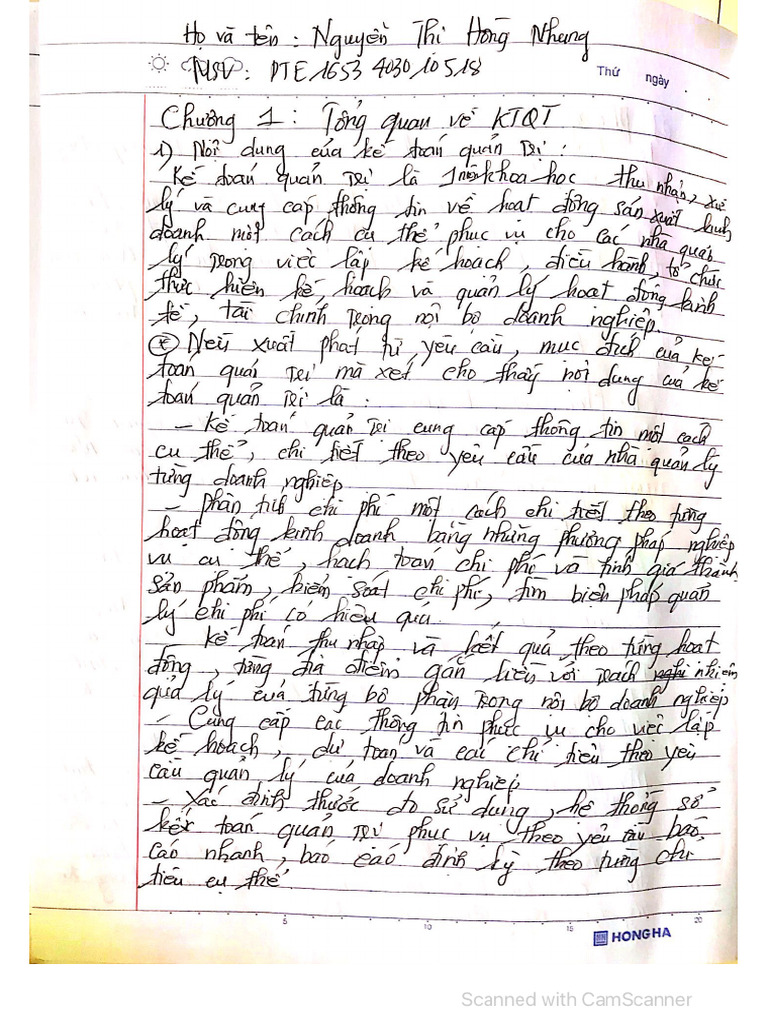 Họ và tên : Nguyễn Thị Hồng Nhung
MSV : DTE1653403010518
Thứ ngày
Chương 1 : Tổng quan về KTQT
1) Nội dung của kế toán quản trị :
Kế toán quản trị là 1 môn khoa học thu nhận, xử
lý và cung cấp thông tin về hoạt động sản xuất kinh
doanh một cách cụ thể phục vụ cho các nhà quản
lý trong việc lập kế hoạch, điều hành, tổ chức
thực hiện kế hoạch và quản lý hoạt động kinh
tế, tài chính trong nội bộ doanh nghiệp.
* Nếu xuất phát từ yêu cầu, mục đích của kế
toán quản trị mà xét, cho thấy nội dung của kế
toán quản trị là :
- Kế toán quản trị cung cấp thông tin một cách
cụ thể, chi tiết theo yêu cầu của nhà quản lý
từng doanh nghiệp
- Phân tích chi phí một cách chi tiết theo từng
hoạt động kinh doanh bằng những phương pháp nghiệp
vụ cụ thể, hạch toán chi phí và tính giá thành
sản phẩm, kiểm soát chi phí, tìm biện pháp quản
lý chi phí có hiệu quả.
- Kế toán thu nhập và kết quả theo từng hoạt
động, từng địa điểm gắn liền với trách nhiệm
quả lý của từng bộ phận trong nội bộ doanh nghiệp
- Cung cấp các thông tin phục vụ cho việc lập
kế hoạch, dự toán và các chỉ tiêu theo yêu
cầu quản lý của doanh nghiệp
- Xác định thước đo sử dụng, hệ thống sổ
kế toán quản trị phục vụ theo yêu cầu báo
cáo nhanh, báo cáo định kỳ theo từng chỉ
tiêu cụ thể.
5 10 15 20
HONG HA
Scanned with CamScanner